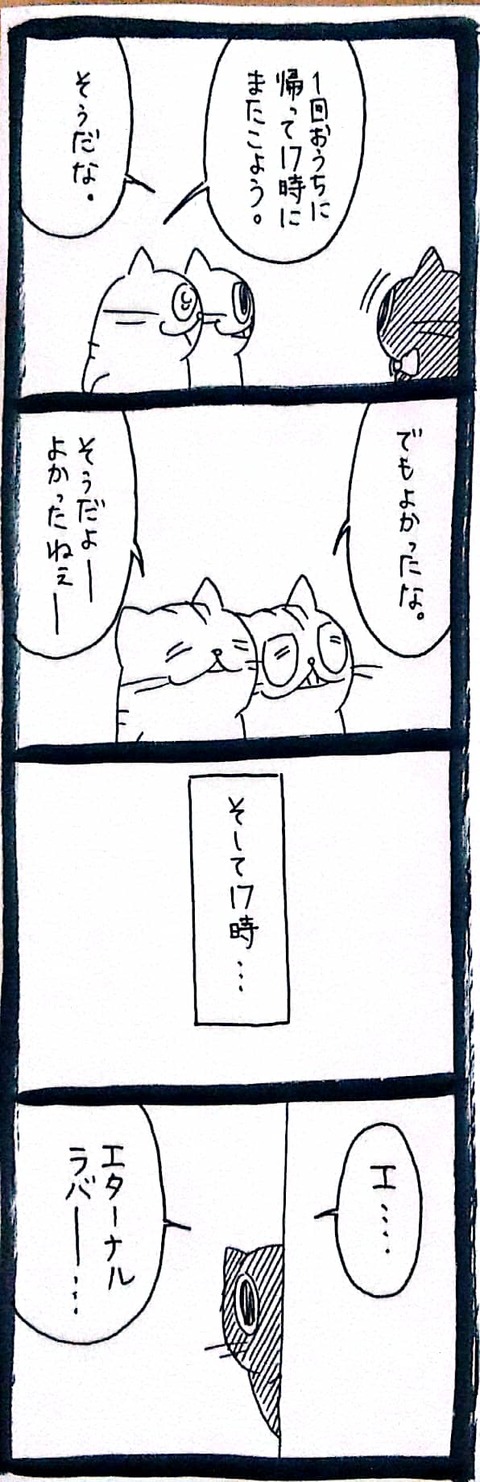 1回おうちに
帰って17時に
またこよう。
そうだな。
でもよかったな。
そうだよー
よかったねぇー
そして17時…
エ…。
エターナル
ラバー…